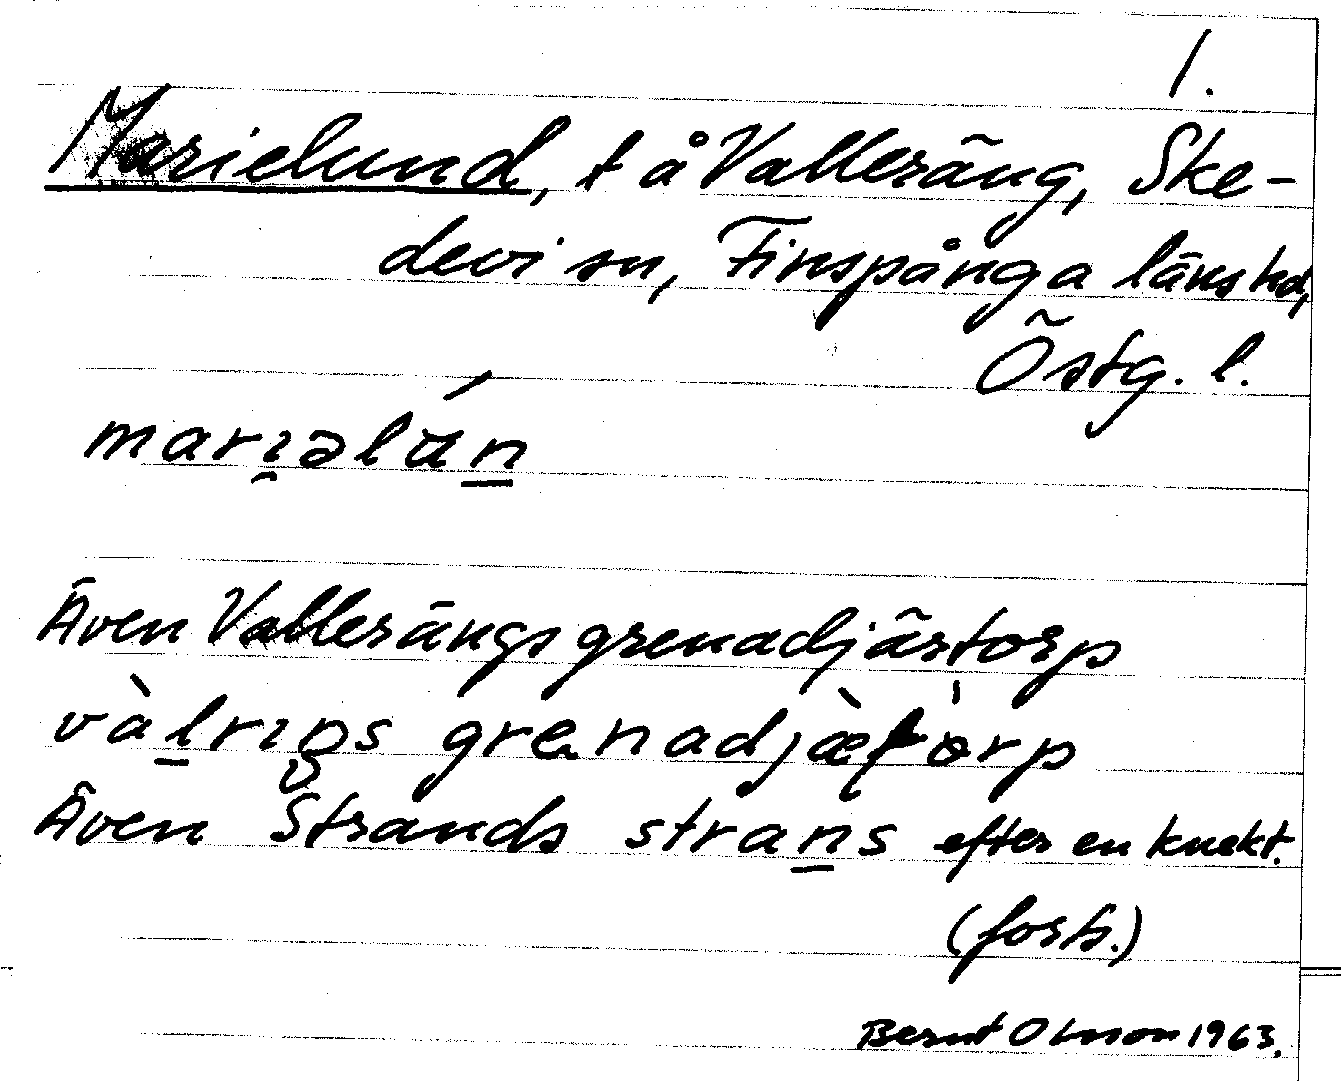 1.
Marielund, t å Valleräng, Ske-
devi sn, Finspånga läns hd,
Östg. l.
marı̯əlún̲
Även Vallerängs grenadjärstorp
vàl̲rıŋs grenadjæ̀ṭòrp
Även Strands stran̲s efter en knekt.
(forts.)
Bernt Olsson 1963.